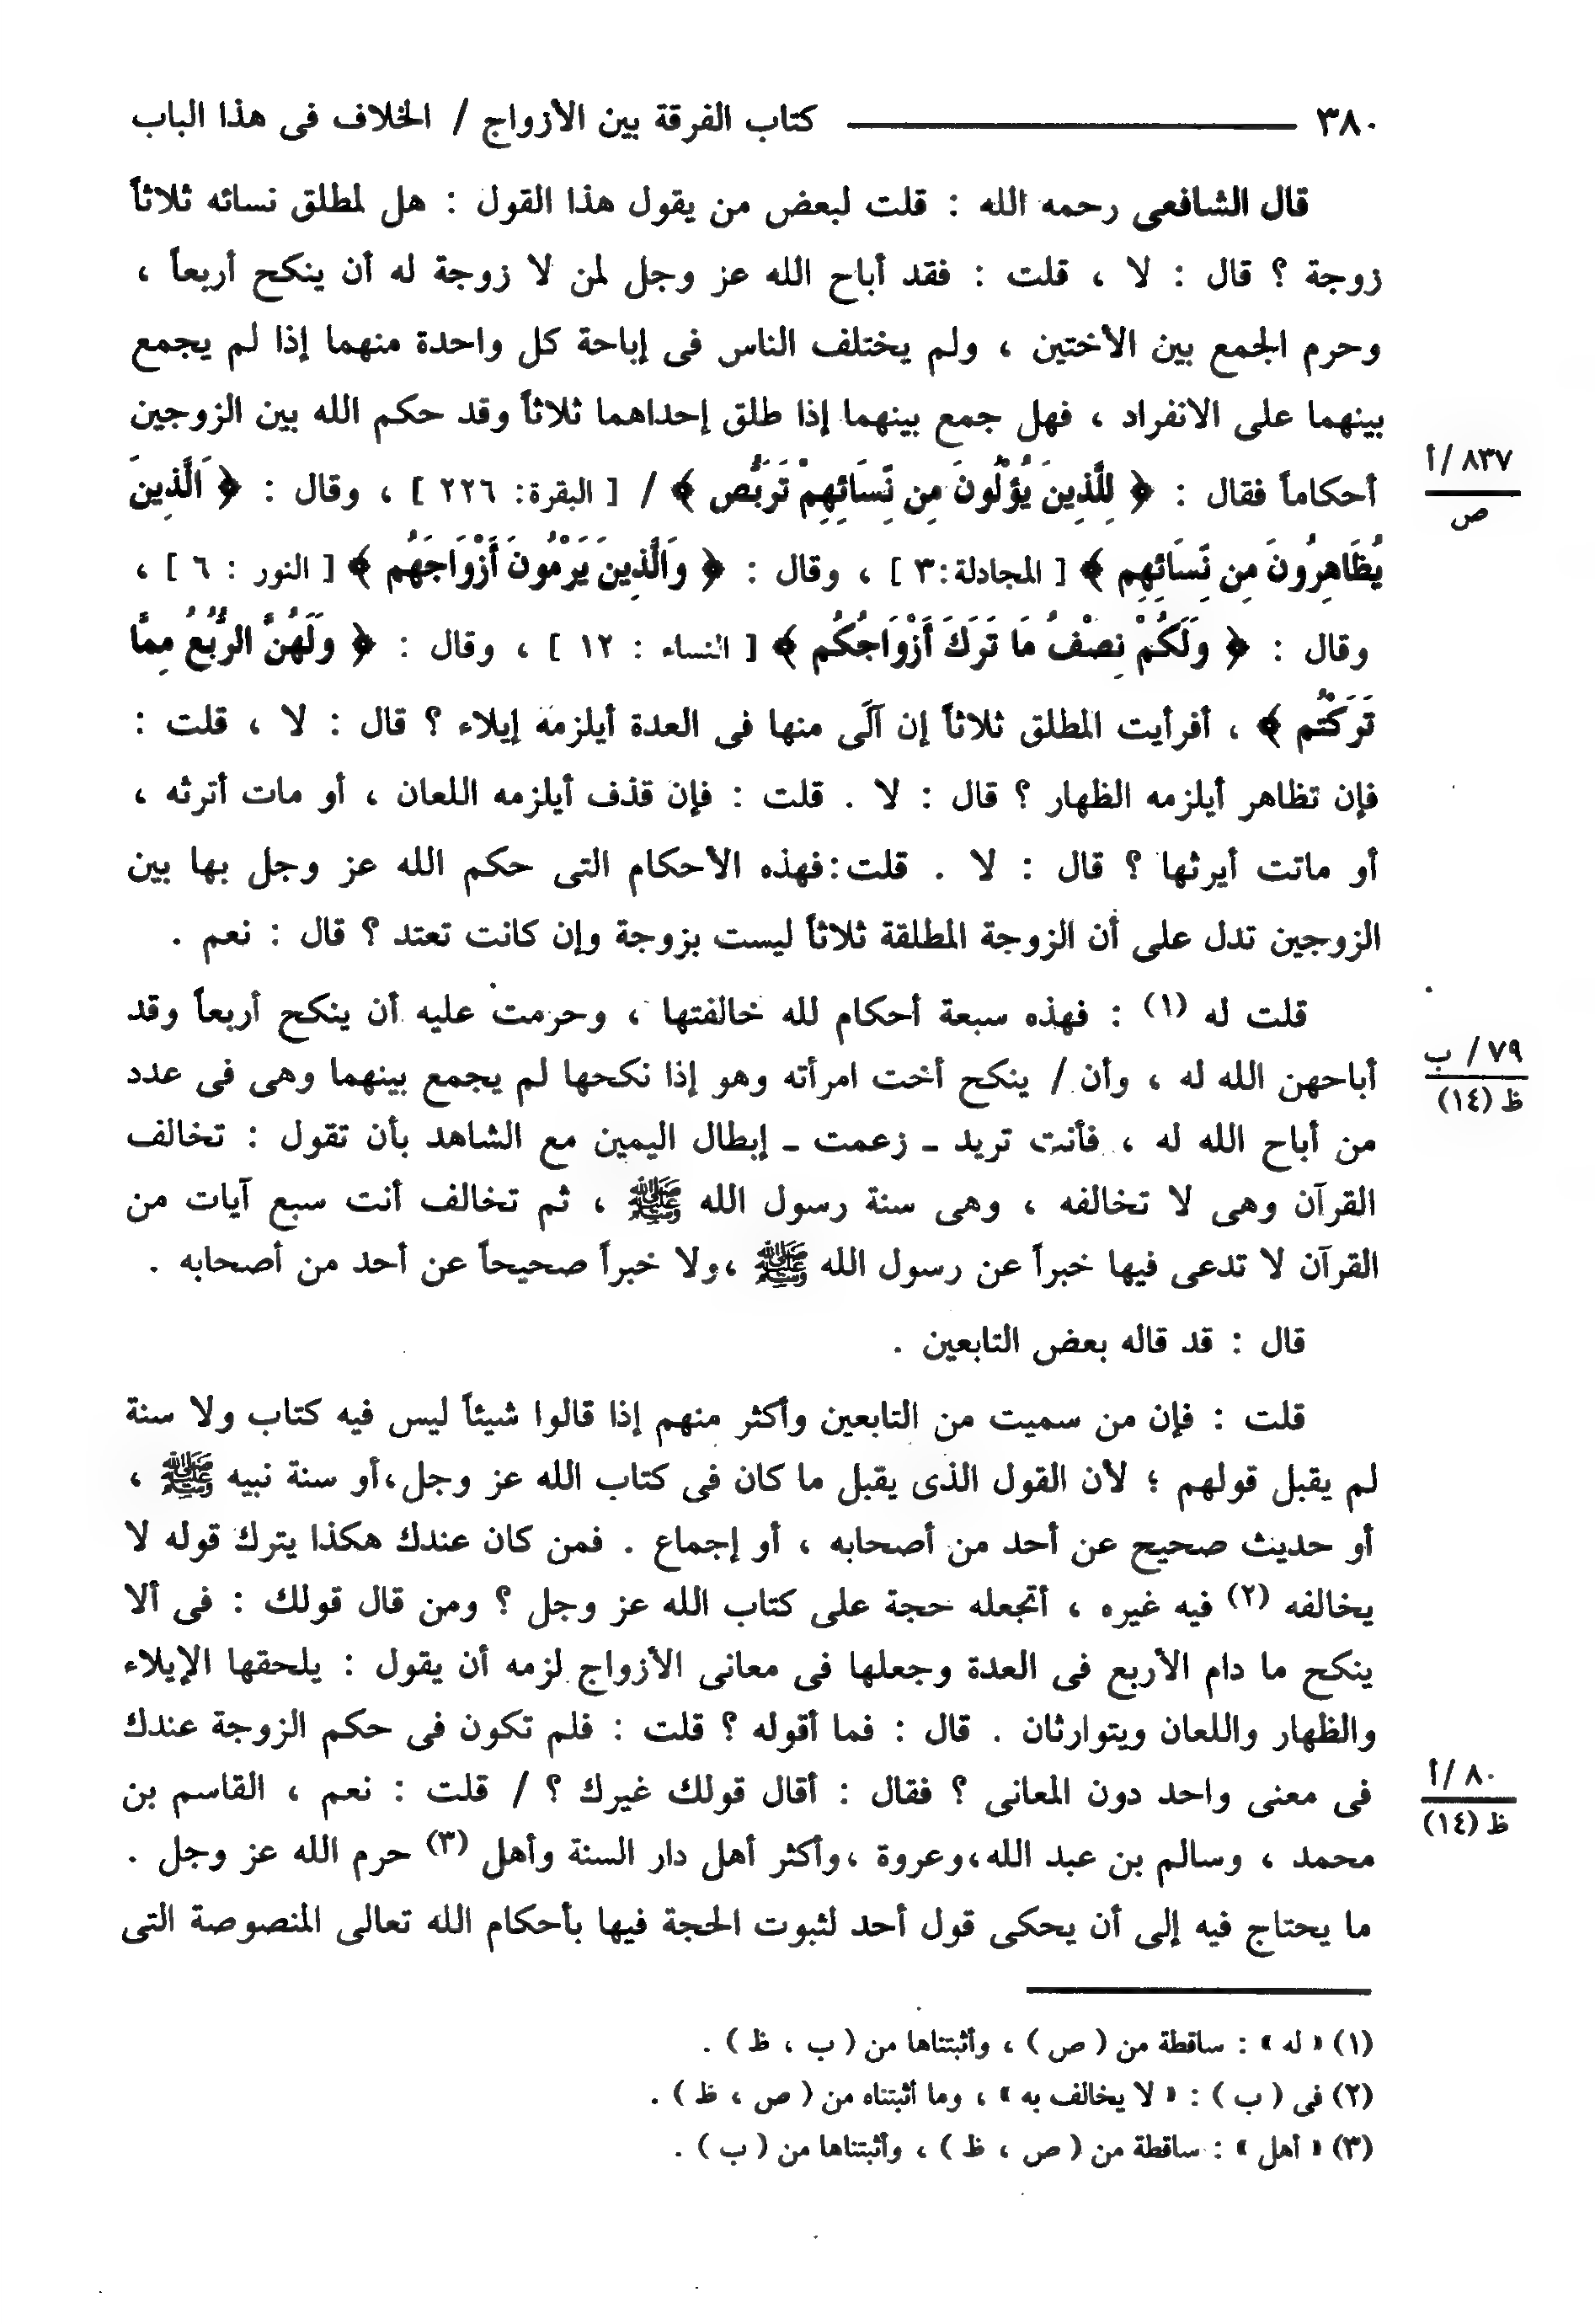 ٣٨٠ كتاب الفرقة بين الأزواج / الخلاف فى هذا الباب
قال الشافعى رحمه الله : قلت لبعض من يقول هذا القول : هل لمطلق نسائه ثلاثاً
زوجة ؟ قال : لا ، قلت : فقد أباح الله عز وجل لمن لا زوجة له أن ينكح أربعاً ،
وحرم الجمع بين الأختين ، ولم يختلف الناس فى إباحة كل واحدة منهما إذا لم يجمع
بينهما على الانفراد ، فهل جمع بينهما إذا طلق إحداهما ثلاثاً وقد حكم الله بين الزوجين
أحكاماً فقال : ﴿ لِلَّذِينَ يُؤْلُونَ مِن نِّسَائِهِمْ تَرَبُّص ﴾ / [ البقرة: ٢٢٦ ] ، وقال : ﴿ الَّذِينَ
٨٣٧ /أ
ص
يُظَاهِرُونَ مِن نِّسَائِهِم ﴾ [ المجادلة:٣ ] ، وقال : ﴿ وَالَّذِينَ يَرْمُونَ أَزْوَاجَهُم ﴾ [ النور : ٦ ] ،
وقال : ﴿ وَلَكُمْ نِصْفُ مَا تَرَكَ أَزْوَاجُكُم ﴾ [ النساء : ١٢ ] ، وقال : ﴿ وَلَهُنَّ الرُّبُعُ مِمَّا
تَرَكْتُم ﴾ ، أفرأيت المطلق ثلاثاً إن آلَى منها فى العدة أيلزمه إيلاء ؟ قال : لا ، قلت :
فإن تظاهر أيلزمه الظهار ؟ قال : لا . قلت : فإن قذف أيلزمه اللعان ، أو مات أترثه ،
أو ماتت أيرثها ؟ قال : لا . قلت:فهذه الأحكام التى حكم الله عز وجل بها بين
الزوجين تدل على أن الزوجة المطلقة ثلاثاً ليست بزوجة وإن كانت تعتد ؟ قال : نعم .
قلت له (١) : فهذه سبعة أحكام لله خالفتها ، وحرمت عليه أن ينكح أربعاً وقد
أباحهن الله له ، وأن / ينكح أخت امرأته وهو إذا نكحها لم يجمع بينهما وهى فى عدد
٧٩ / ب
ظ (١٤)
من أباح الله له ، فأنت تريد ـ زعمت ـ إبطال اليمين مع الشاهد بأن تقول : تخالف
القرآن وهى لا تخالفه ، وهى سنة رسول الله ﷺ ، ثم تخالف أنت سبع آيات من
القرآن لا تدعى فيها خبراً عن رسول الله ﷺ ،ولا خبراً صحيحاً عن أحد من أصحابه .
قال : قد قاله بعض التابعين .
قلت : فإن من سميت من التابعين وأكثر منهم إذا قالوا شيئاً ليس فيه كتاب ولا سنة
لم يقبل قولهم ؛ لأن القول الذى يقبل ما كان فى كتاب الله عز وجل،أو سنة نبيه ﷺ ،
أو حديث صحيح عن أحد من أصحابه ، أو إجماع . فمن كان عندك هكذا يترك قوله لا
يخالفه (٢) فيه غيره ، أتجعله حجة على كتاب الله عز وجل ؟ ومن قال قولك : فى ألا
ينكح ما دام الأربع فى العدة وجعلها فى معانى الأزواج لزمه أن يقول : يلحقها الإيلاء
والظهار واللعان ويتوارثان . قال : فما أقوله ؟ قلت : فلم تكون فى حكم الزوجة عندك
فى معنى واحد دون المعانى ؟ فقال : أقال قولك غيرك ؟ / قلت : نعم ، القاسم بن
٨٠ /أ
ظ (١٤)
محمد ، وسالم بن عبد الله،وعروة ،وأكثر أهل دار السنة وأهل (٣) حرم الله عز وجل .
ما يحتاج فيه إلى أن يحكى قول أحد لثبوت الحجة فيها بأحكام الله تعالى المنصوصة التى
(١) « له » : ساقطة من ( ص ) ، وأثبتناها من ( ب ، ظ ) .
(٢) فى ( ب ) : « لا يخالف به » ، وما أثبتناه من ( ص ، ظ ) .
(٣) « أهل » : ساقطة من ( ص ، ظ ) ، وأثبتناها من ( ب ) .